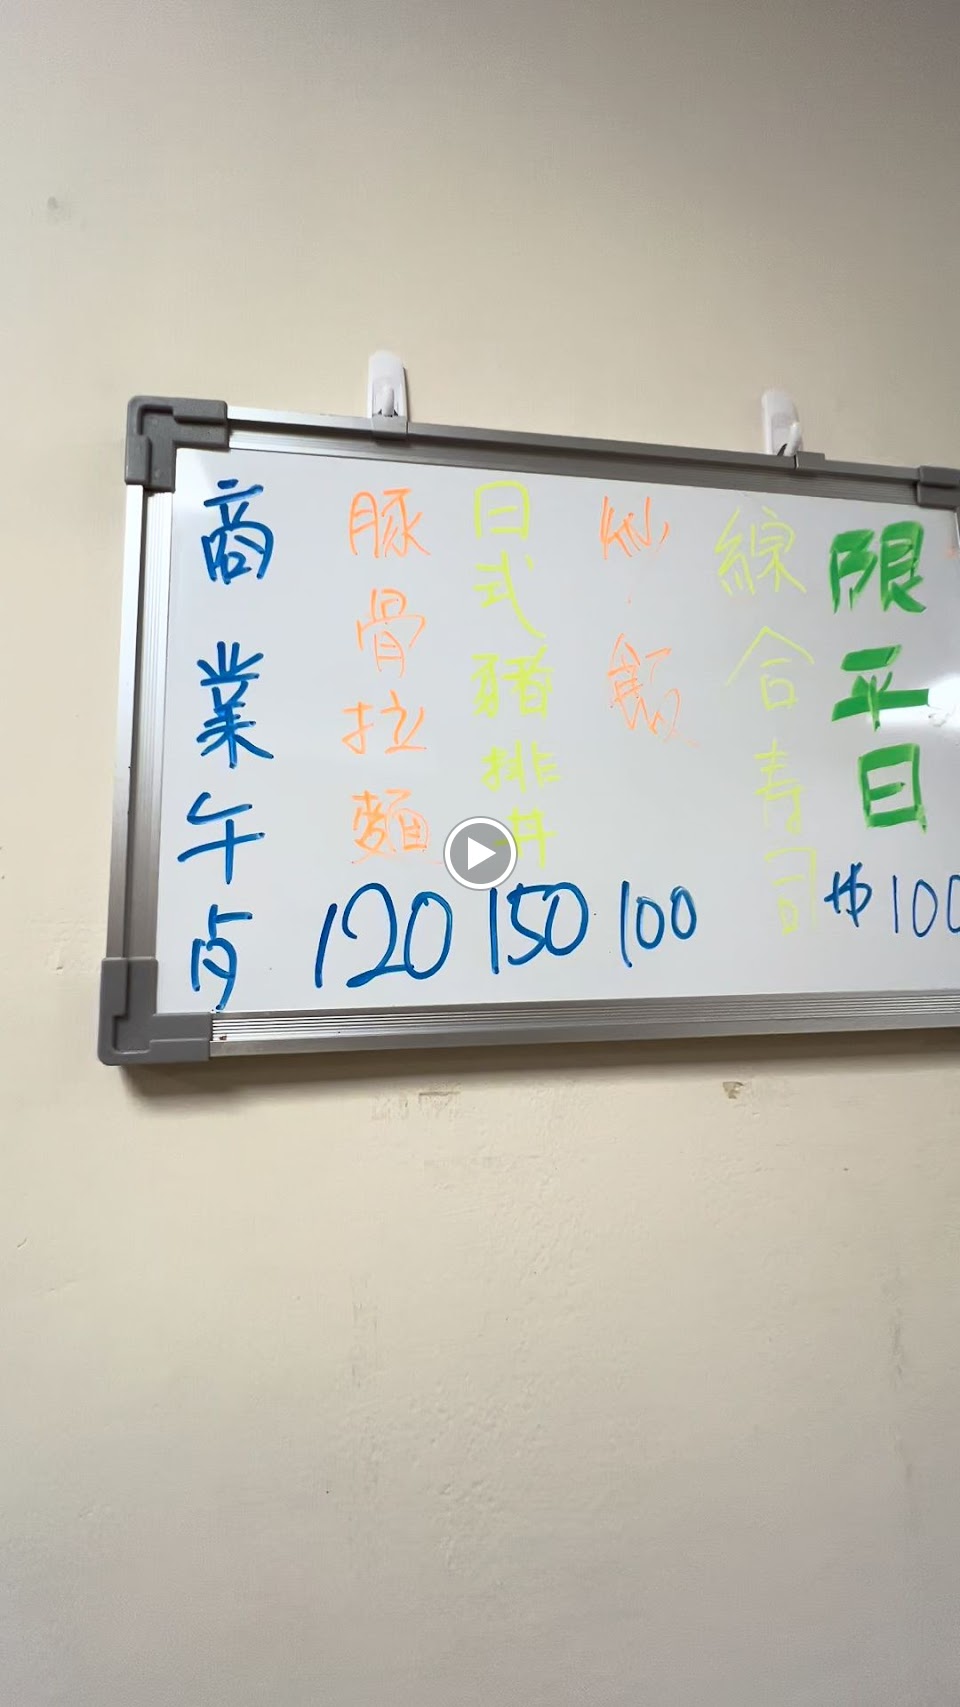 商業午
豚骨拉麵
120
日式豬排丼
150
炒飯
100
綜合壽司
限平日
$100